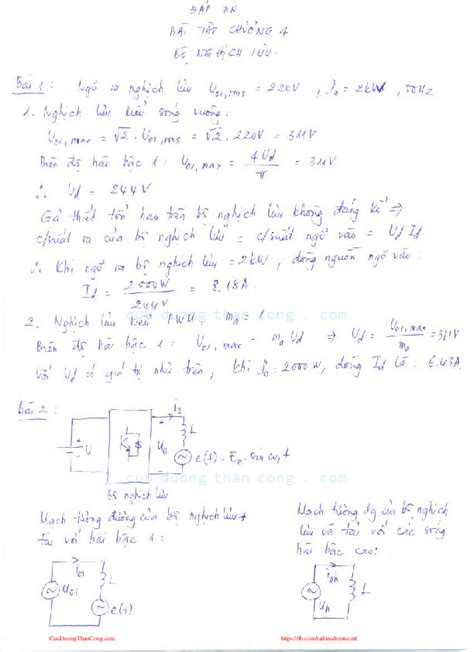 ĐÁP ÁN
BÀI TẬP CHƯƠNG 4
BỘ NGHỊCH LƯU
Bài 1: Ngõ ra nghịch lưu Uo1,rms = 220V, Po = 2kW, 50Hz
1. Nghịch lưu kiểu sóng vuông:
Uo1,max = √2 . Uo1,rms = √2 . 220V = 311V
Biên độ hài bậc 1: Uo1,max = 4Ud/π = 311V
∴ Ud = 244V
Giả thiết tổn hao trên bộ nghịch lưu không đáng kể ⇒
c/suất ra của bộ nghịch lưu = c/suất ngõ vào = Ud Id
∴ Khi ngõ ra bộ nghịch lưu = 2kW, dòng nguồn ngõ vào:
Id = 2000W/244V = 8.18A.
cuu duong than cong . com
2. Nghịch lưu kiểu PWM, ma = 1
Biên độ hài bậc 1: Uo1,max = ma Ud ⇒ Ud = Uo1,max/ma = 311V
Với Ud có giá trị như trên, khi Po = 2000W, dòng Id là 6.43A.
Bài 2:
io
L
U
Uo
e(t) = Em sin ω1t
cuu duong than cong . com
Bộ nghịch lưu
Mạch tương đương của bộ nghịch lưu +
tải với hài bậc 1:
Mạch tương đg của bộ nghịch
lưu và tải với các sóng
hài bậc cao:
io1
L
Uo1
e(t)
ioh
L
Uh
CuuDuongThanCong.com
https://fb.com/tailieudientucntt